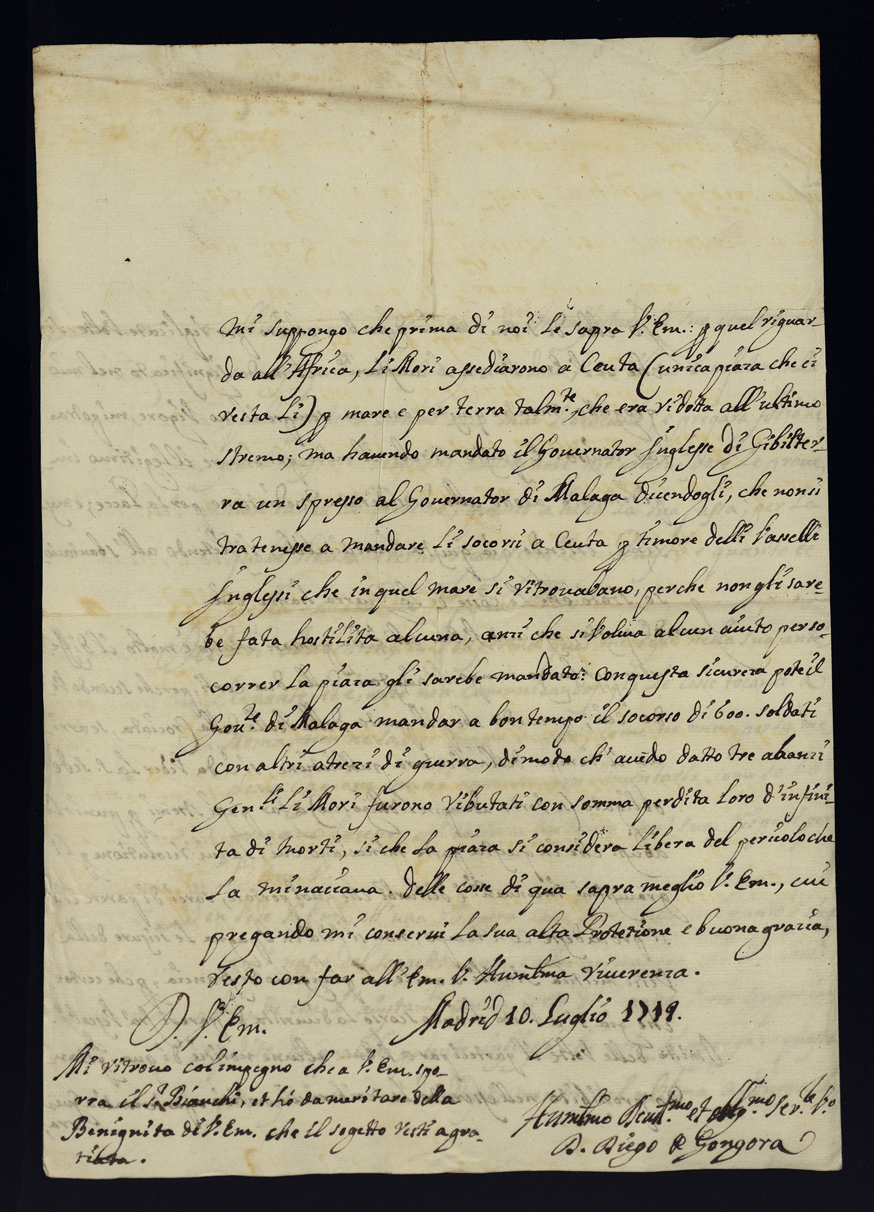 Mi suppongo che prima di noi Le sapra V. Em.: p quel riguar-
da all'Africa, Li Mori assediarono a Ceuta (unica piaza che ci
resta Li) p mare e per terra talm.te, che era ridotta all'ultimo
stremo; ma havendo mandato il Governator Inglesse di Gibilter-
ra un spresso al Governator di Malaga dicendogli, che non si
tratenesse a mandare Li socorsi a Ceuta p timore delli Vasselli
Inglesi che in quel mare si ritrovabano, perche non gli sare-
be fata hostilita alcuna, anzi che si Voliva alcun aiuto per so-
correr La piaza gli sarebe mandato: Con questa sicureza pote il
Gov.re di Malaga mandar a bon tempo il socorso di 600. soldati
con altri atrezi di guerra, di modo ch' avedo datto tre abanzi
Gen.li Li Mori furono ributati con somma perdita Loro d'infini-
ta di morti, si che La piaza si considera Libera del pericolo che
La minaciava. Delle cosse di qua sapra meglio V. Em., cui
pregando mi conservi La sua alta Protetione e buona gracia,
resto con far all'Em. V. Humilma riverenza.
D. V. Em.
Madrid 10. Luglio 1719.
Mi ritrovo col impegno che a V. Em. spo-
rra il S.r Bianchi, et hò da meritare della
Benignita di V. Em. che il sogetto resti agra-
tiato.
Humilmo Devot.mo et oblig.mo Ser.re V.o
D. Diego de Gongora